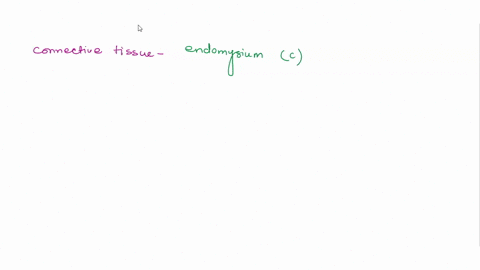 connective tissue - endomysium (c)